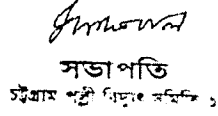 সভাপতি
চট্টগ্রাম পল্লী বিদ্যুৎ সমিতি ১